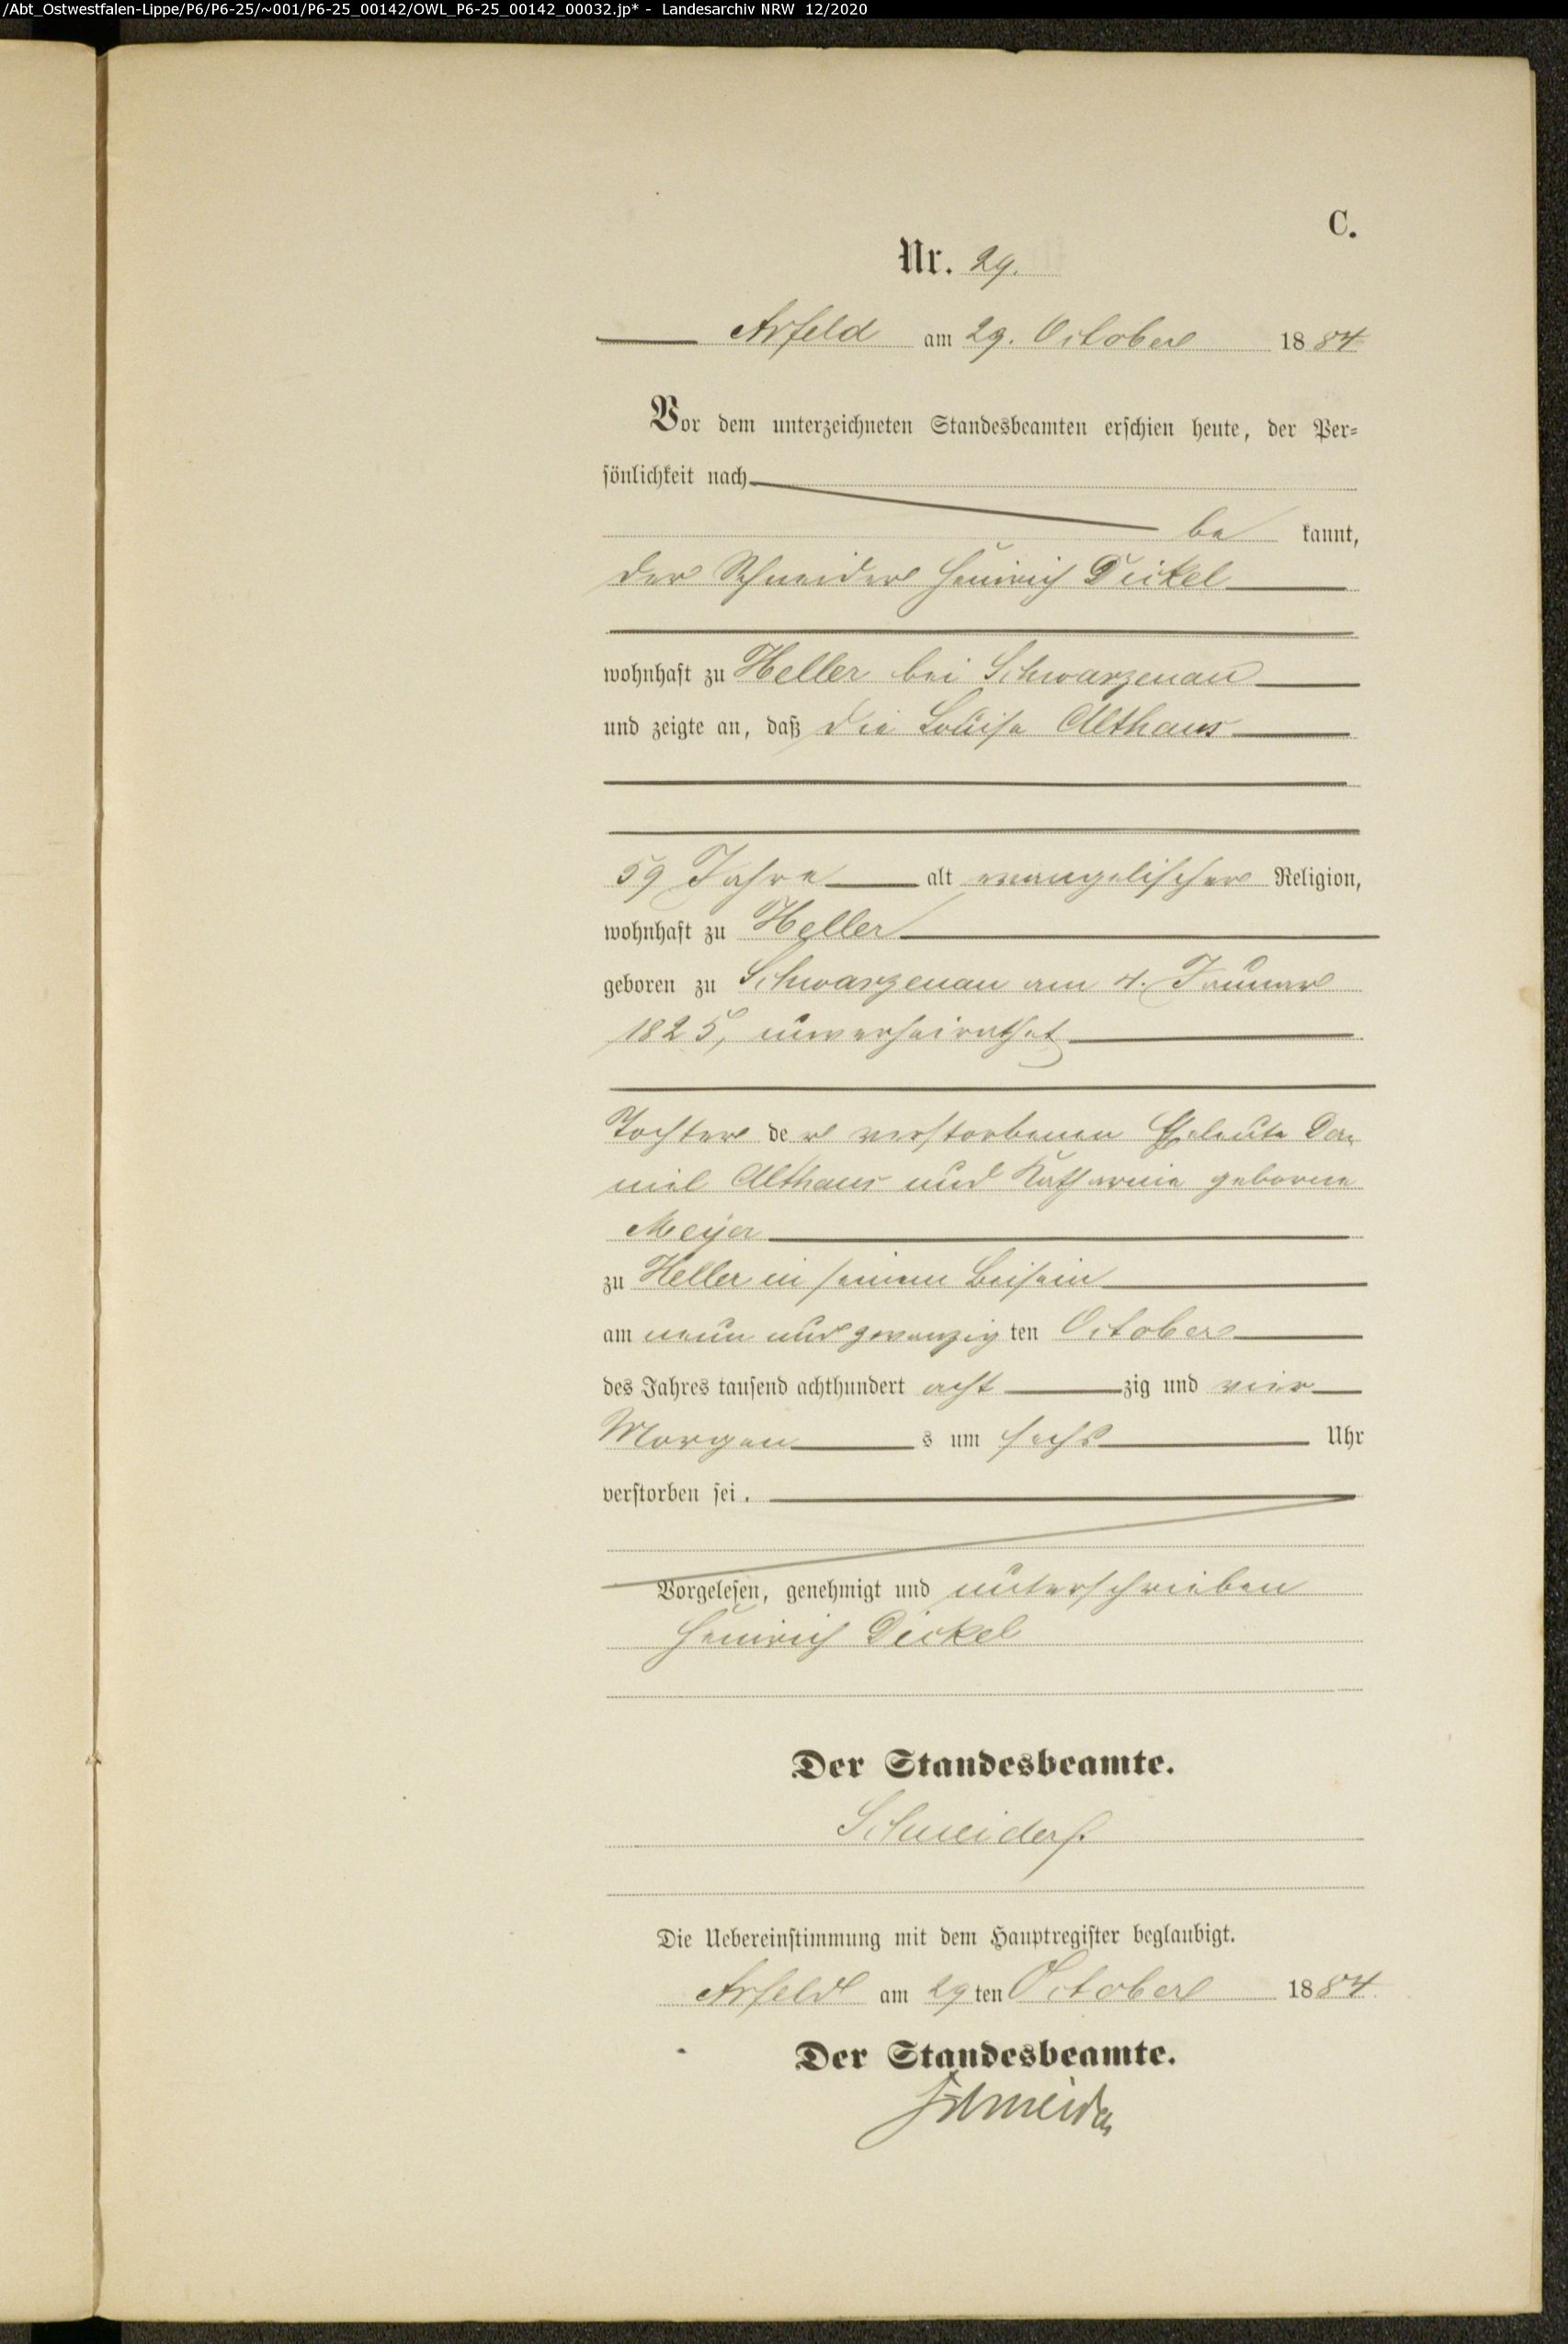 /Abt_Ostwestfalen-Lippe/P6/P6-25/~001/P6-25_00142/OWL_P6-25_00142_00032.jp* - Landesarchiv NRW 12/2020
C.
Nr. 29.
Arfeld am 29. October 1884
Vor dem unterzeichneten Standesbeamten erschien heute, der Per-
sönlichkeit nach
be kannt,
der Schneider Heinrich Dickel
wohnhaft zu Heller bei Schwarzenau
und zeigte an, daß die Louise Althaus
59 Jahre alt evangelischer Religion,
wohnhaft zu Heller
geboren zu Schwarzenau am 4. Januar
1825, unverheirathet
Tochter der verstorbenen Eheleute Da-
niel Althaus und Katharine geborne
Meyer
zu Heller in seinem Beisein
am neun und zwanzigten October
des Jahres tausend achthundert acht zig und vier
Morgen s um sechs Uhr
verstorben sei.
Vorgelesen, genehmigt und unterschrieben
Heinrich Dickel
Der Standesbeamte.
Schneider
Die Uebereinstimmung mit dem Hauptregister beglaubigt.
Arfeld am 29ten October 1884.
Der Standesbeamte.
Schneider